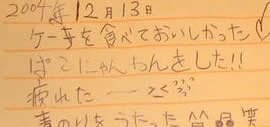 2004年12月13日
ケーキを食べておいしかった♡
ぱてにゃんわんをした!!
疲れた ——
をうたった